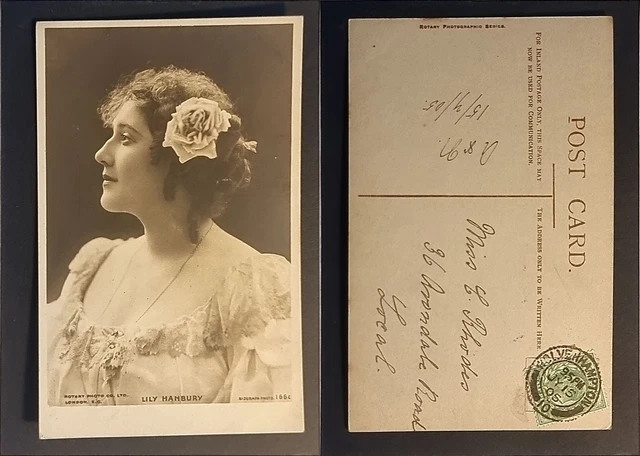 ROTARY PHOTO CO. LTD.
LONDON. E.C.
LILY HANBURY
BIOGRAPH PHOTO. 166 C
ROTARY PHOTOGRAPHIC SERIES.
POST CARD.
FOR INLAND POSTAGE ONLY, THIS SPACE MAY
NOW BE USED FOR COMMUNICATION.
THE ADDRESS ONLY TO BE WRITTEN HERE
15/4/05.
Miss C. Rhodes
36 Avondale Road
Local.
WOLVERHAMPTON